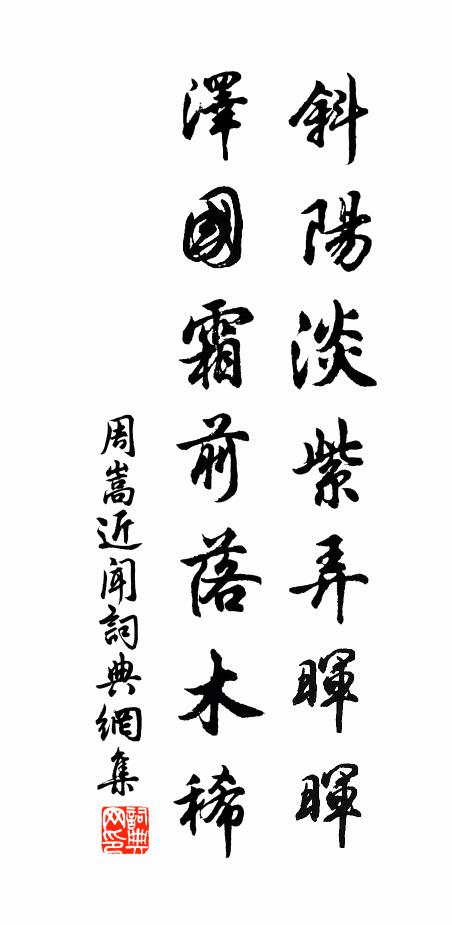 斜陽淡紫弄暉暉
澤國霜前落木稀
周嵩近聞詞典網集
詞典网印